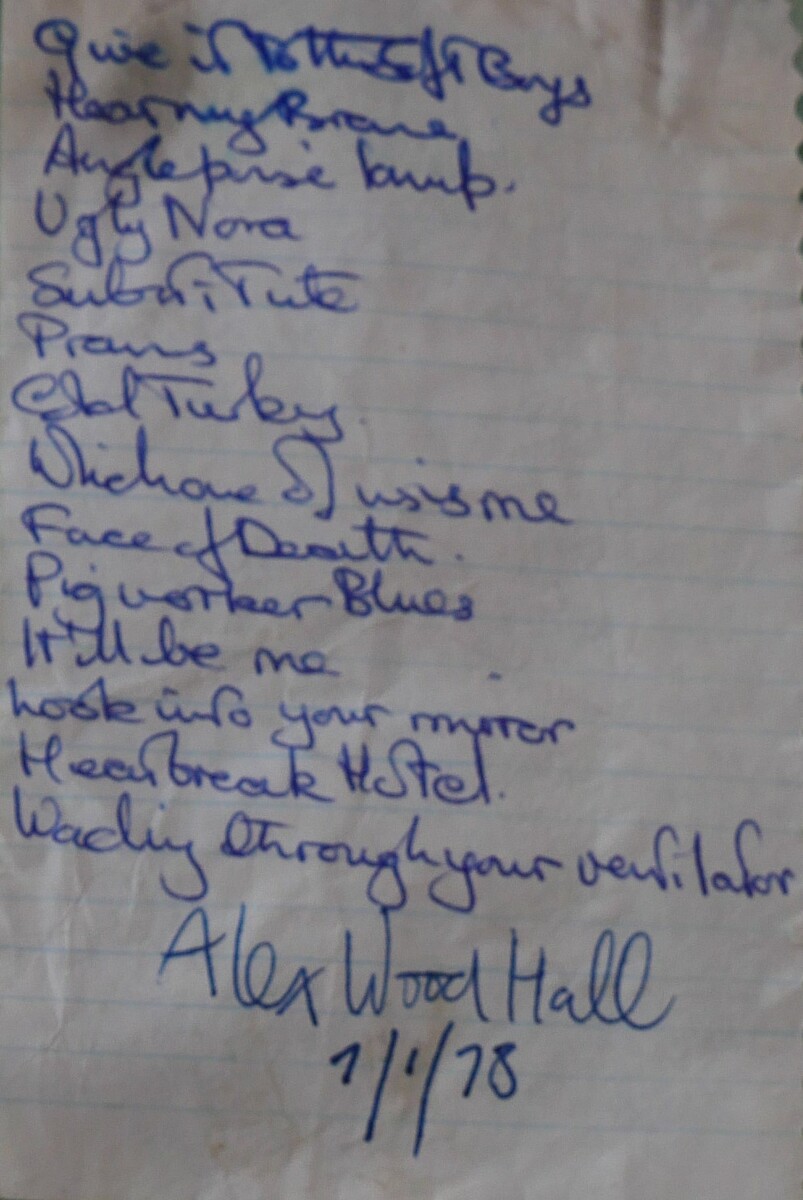 Give it to the Soft Boys
Hear my Brane
Anglepoise lamp.
Ugly Nora
Substitute
Prams
Cold Turkey.
Which one of us is me
Face of Death.
Pigworker Blues
It'll be me
Look into your mirror
Heartbreak Hotel.
Wading through your ventilator
Alex Wood Hall
1/1/78